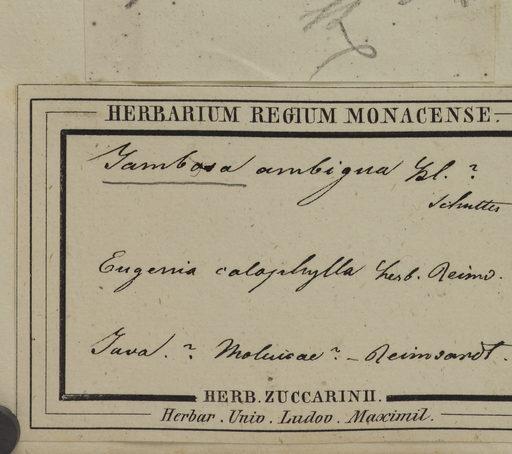 HERBARIUM REGIUM MONACENSE.
Jambosa ambigua Bl. ?
Eugenia calophylla herb. Reinw.
Java. ? Moluccae ? - Reinwardt.
HERB. ZUCCARINII.
Herbar. Univ. Ludov. Maximil.